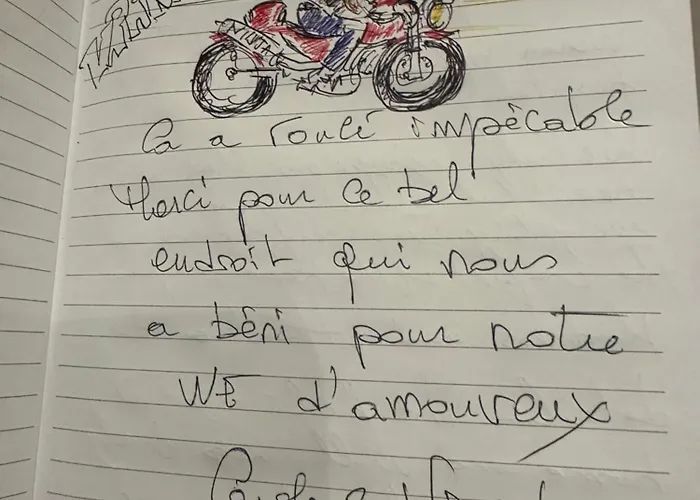 Ça a roulé impécable
Merci pour ce bel
endroit qui nous
a béni pour notre
WE d'amoureux